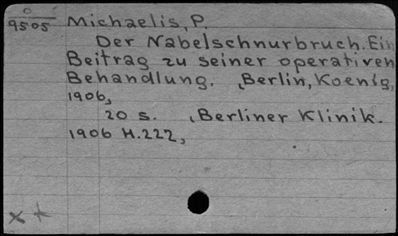 O
9505
Michaelis, P.
Der Nabelschnurbruch. Ein
Beitrag zu seiner operativen
Behandlung. Berlin, Koenig,
1906,
20 s. (Berliner Klinik.
1906 H.222,